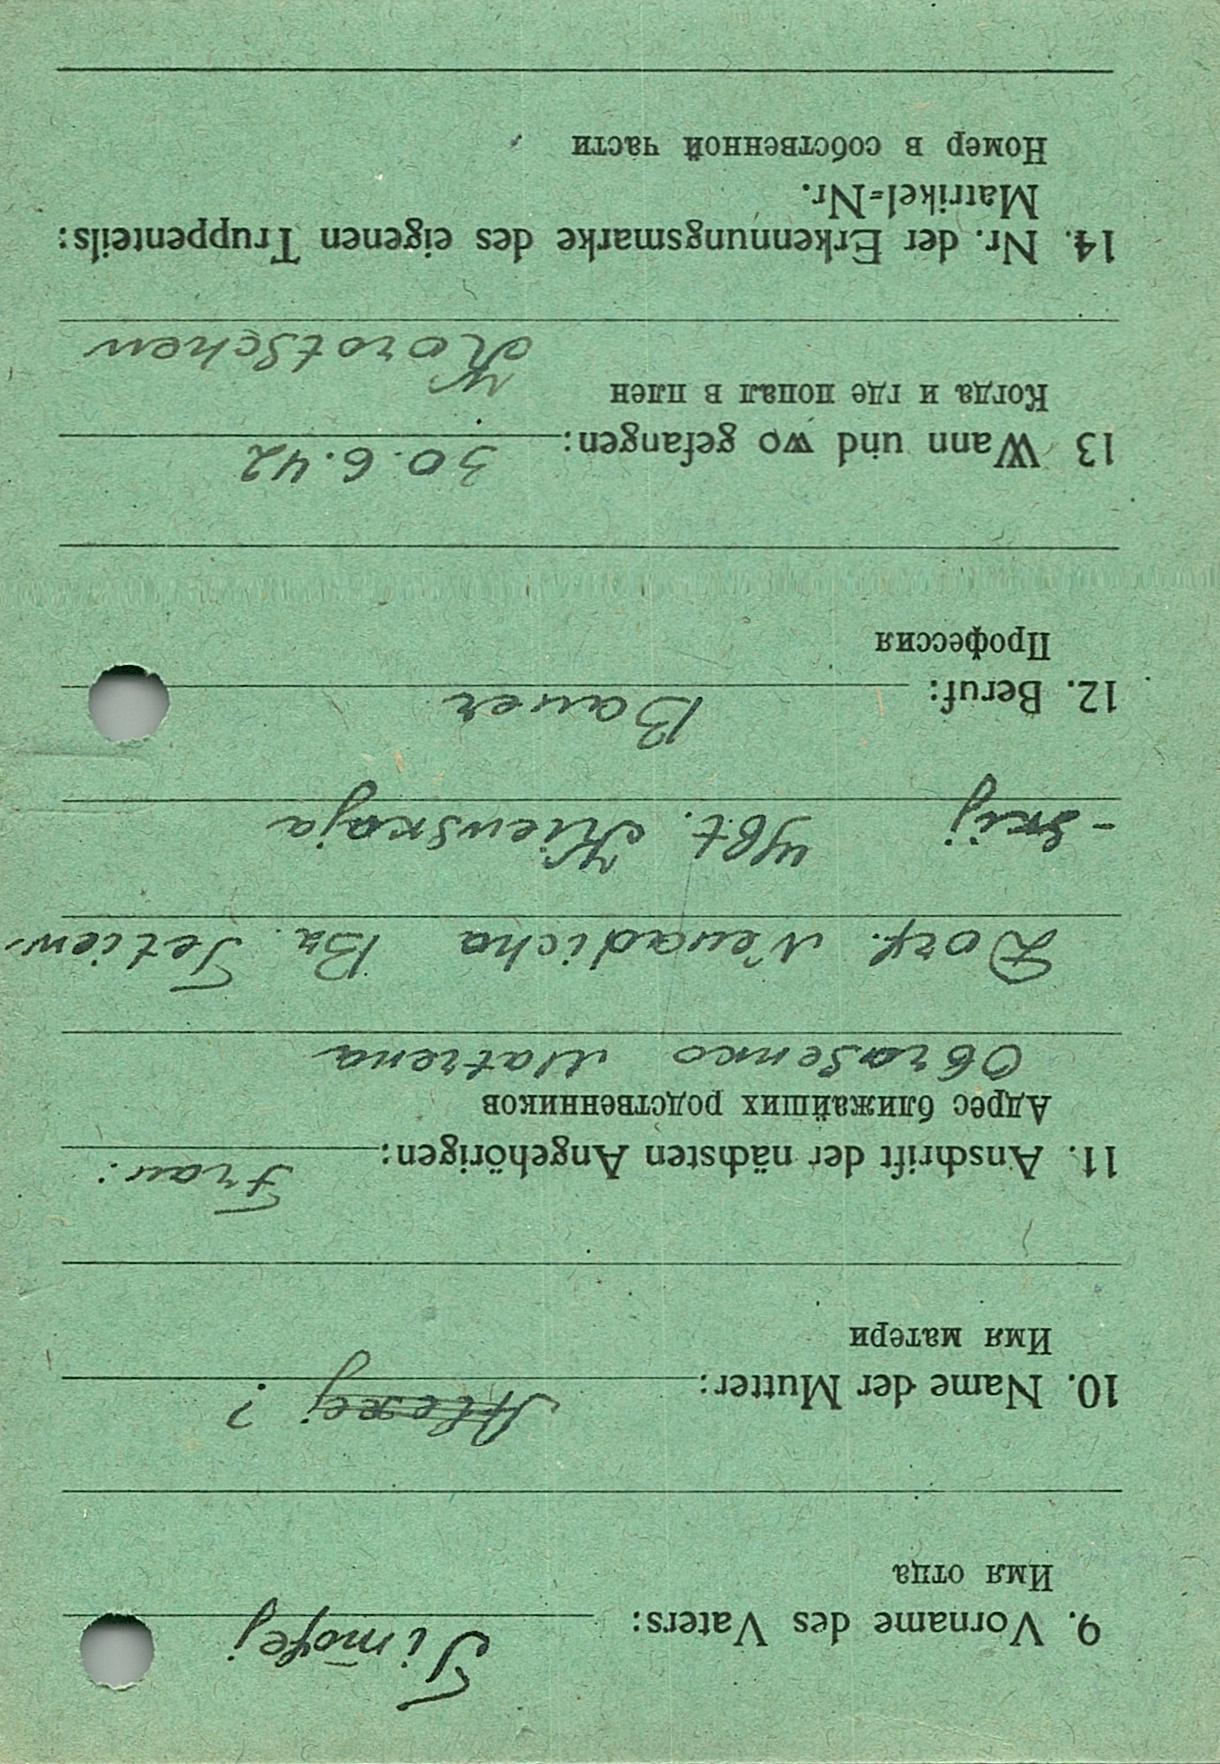 9. Vorname des Vaters: Timofej
Имя отца
10. Name der Mutter: Alexej ?
Имя матери
11. Anschrift der nächsten Angehörigen: Frau:
Адрес ближайших родственников
Obrasenko Matrena
Dorf. Newadicha Bz. Tetiew-
-skij Gbt. Kiewskaja
12. Beruf: Bauer
Профессия
13 Wann und wo gefangen: 30.6.42
Когда и где попал в плен
Korotschen
14. Nr. der Erkennungsmarke des eigenen Truppenteils:
Matrikel=Nr.
Номер в собственной части